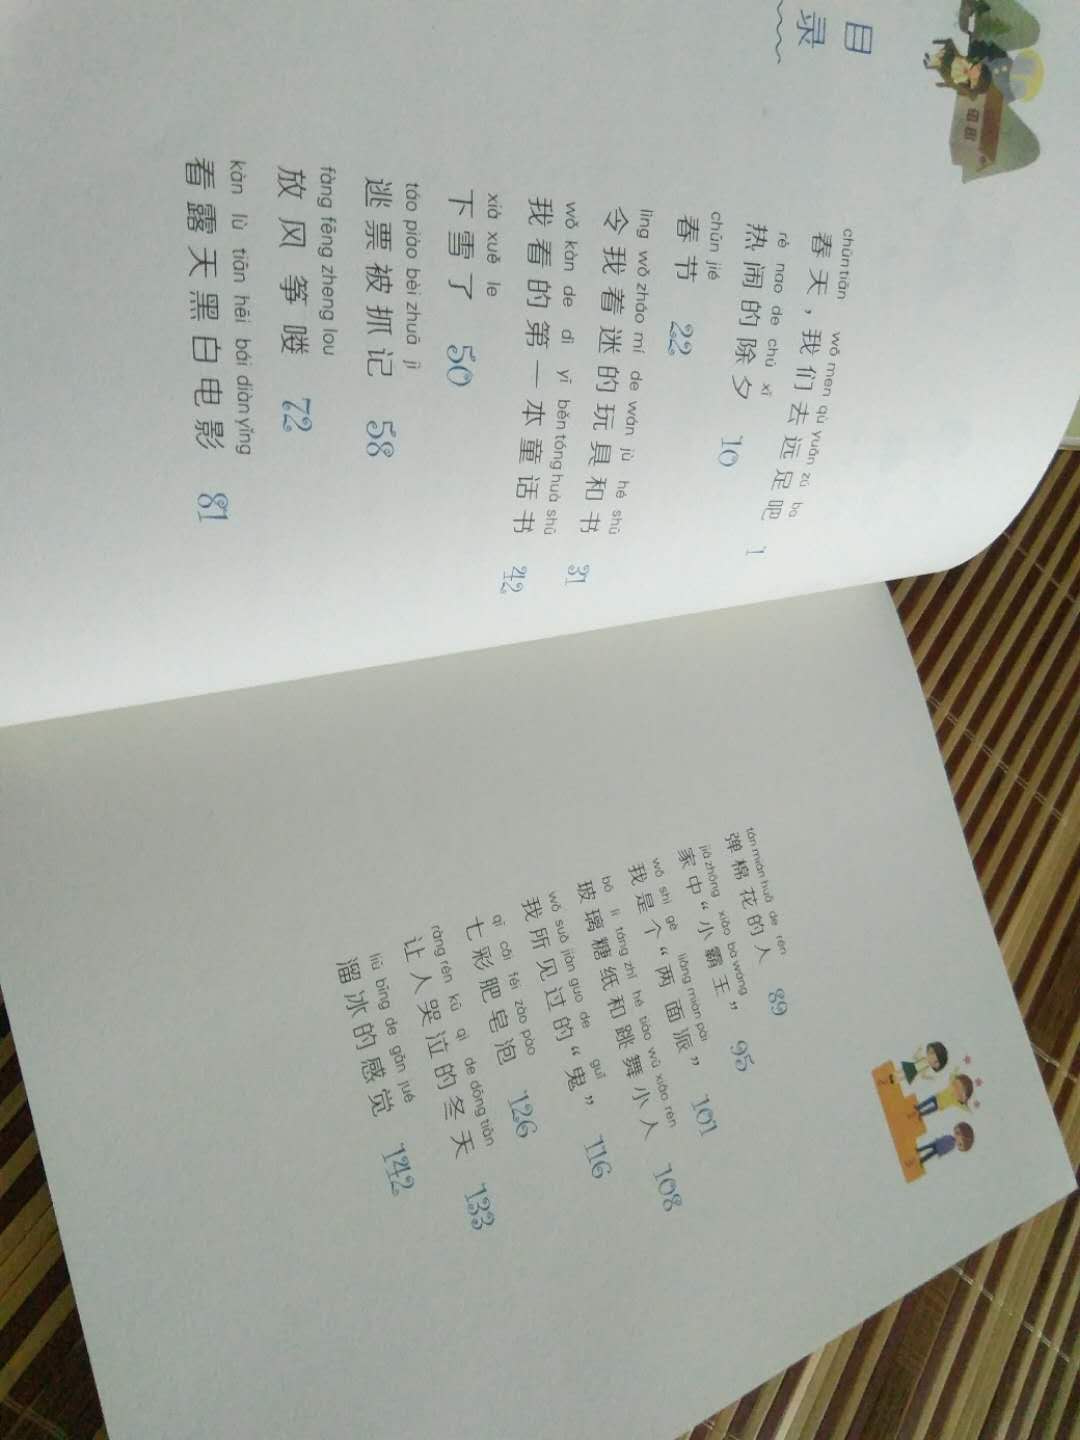 目录
chūn tiān wǒ men qù yuǎn zú ba
春天，我们去远足吧 1
rè nao de chú xī
热闹的除夕 10
chūn jié
春节 22
lìng wǒ zháo mí de wán jù hé shū
令我着迷的玩具和书 31
wǒ kàn de dì yī běn tóng huà shū
我看的第一本童话书 42
xià xuě le
下雪了 50
táo piào bèi zhuā jì
逃票被抓记 58
fàng fēng zheng lou
放风筝喽 72
kàn lù tiān hēi bái diàn yǐng
看露天黑白电影 81
tán mián huā de rén
弹棉花的人 89
jiā zhōng xiǎo bà wáng
家中“小霸王” 95
wǒ shì gè liǎng miàn pài
我是个“两面派” 101
bō li táng zhǐ hé tiào wǔ xiǎo rén
玻璃糖纸和跳舞小人 108
wǒ suǒ jiàn guo de guǐ
我所见过的“鬼” 116
qī cǎi féi zào pào
七彩肥皂泡 126
ràng rén kū qì de dōng tiān
让人哭泣的冬天 133
liū bīng de gǎn jué
溜冰的感觉 142